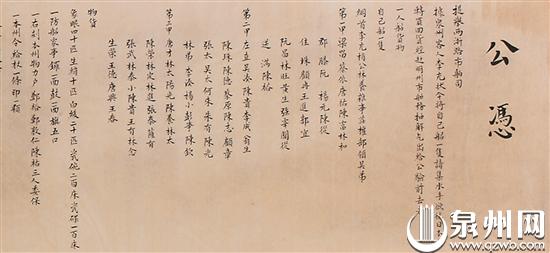 公憑
提舉兩浙路市舶司
據泉州客人李充狀今將自己船一隻請集水手欲往日本
轉買回貨經赴明州市舶務抽解乞出給公驗前去者
一人船貨物
自己船一隻
綱首李充梢公林養雜事莊權部領吳弟
第一甲梁留蔡依唐祐陳富林和
郡滕阮 楊元陳從
住珠顧冉王進郭宜
阮昌林旺黃生強宰關從
送滿陳裕
第二甲左直吳湊陳貴李成翁生
陳珠陳德蔡原陳志顧章
張太吳太何來朱有陳先
林弟李添楊小彭事陳欽
第三甲唐才林太陽光陳養林太
陳榮林定林進張泰薩有
張武林泰小陳貴王有林念
生榮王德唐興王春
物貨
象眼四十匹生絹十匹白綾二十匹瓷碗二百床瓷碟一百床
一防船家事鑼一面鼓一面旗五口
一右刻本州物力戶鄭裕鄭敦仁陳祐三人委保
一本州令給杖一條印一顆
泉州网
www.qzwb.com